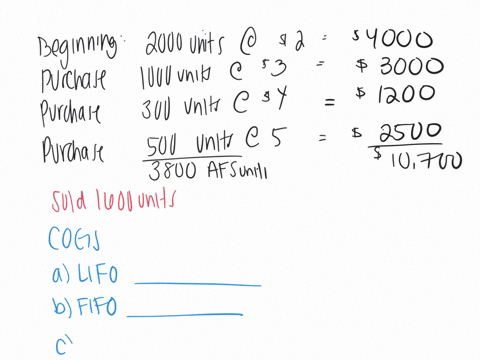 Beginning: 2000 units @ $2 = $4000
Purchase 1000 units @ $3 = $3000
Purchase 300 units @ $4 = $1200
Purchase 500 units @ 5 = $2500
3800 AFS units $10,700
Sold 1600 units
COGS
a) LIFO
b) FIFO
c)